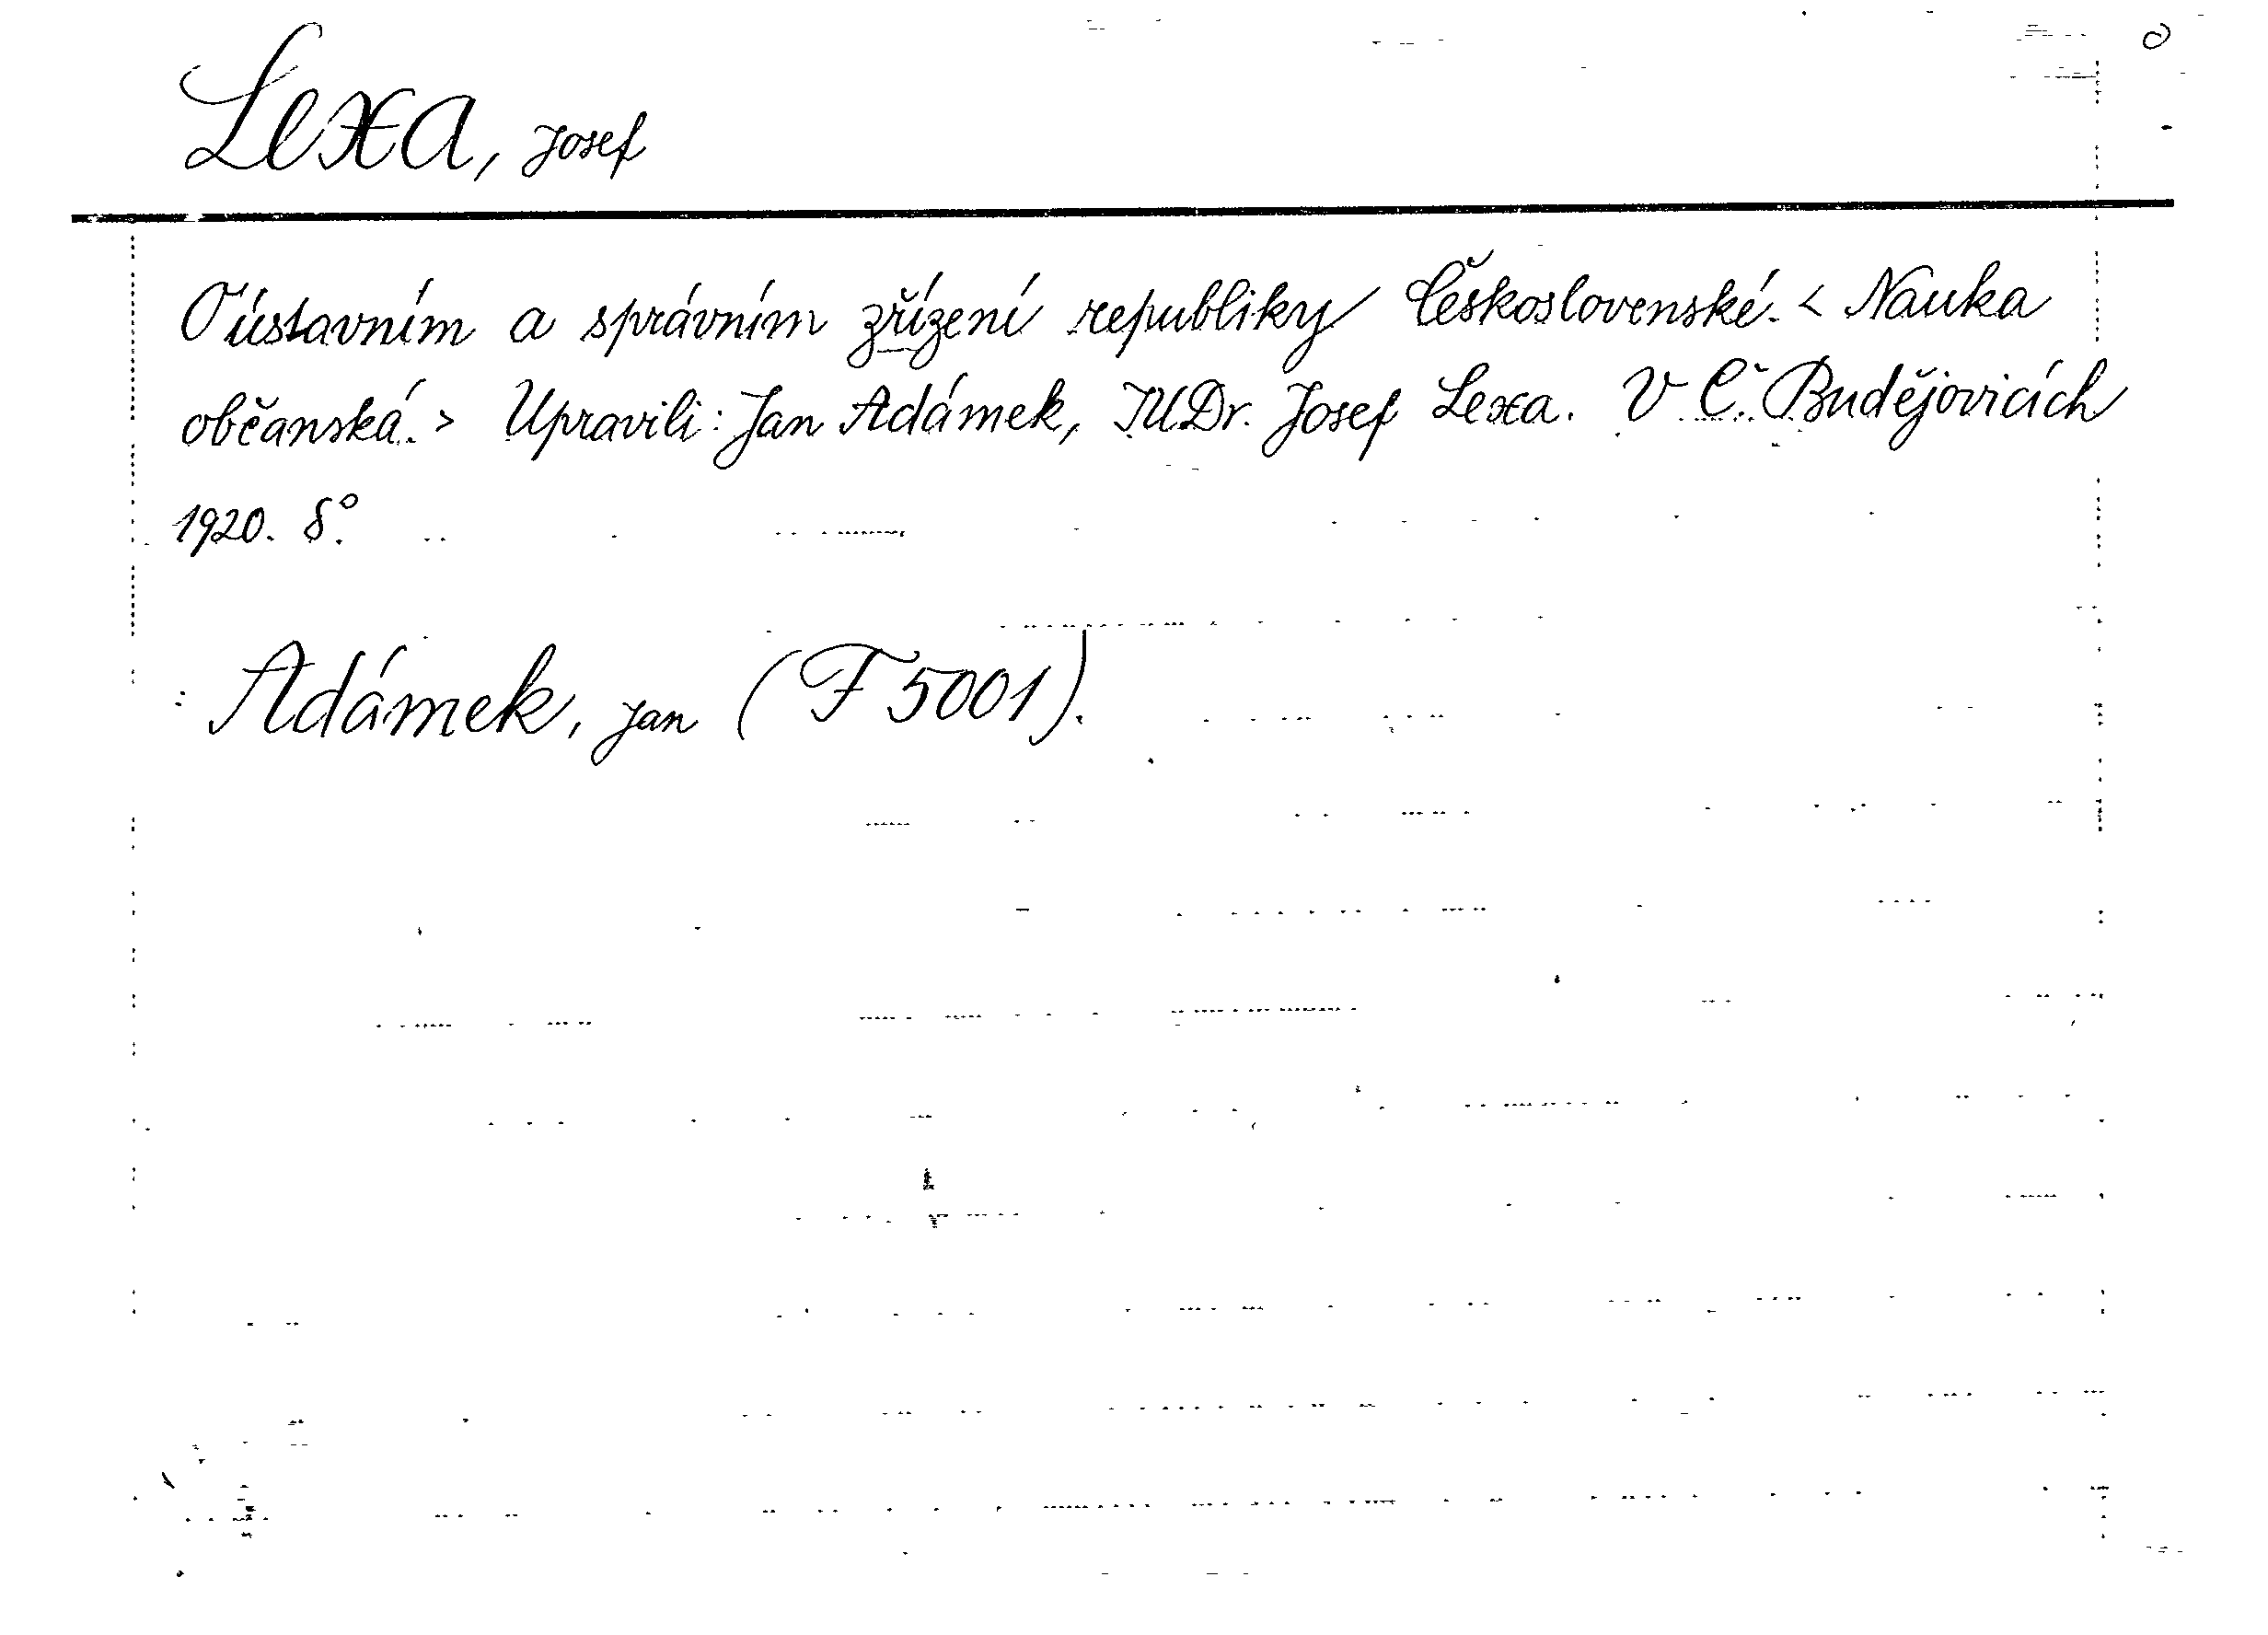 Lexa, Josef
O ústavním a správním zřízení republiky Československé. < Nauka
občanská. > Upravili: Jan Adámek, JUDr. Josef Lexa. V Č. Budějovicích
1920. 8°.
: Adámek, Jan (F 5001).